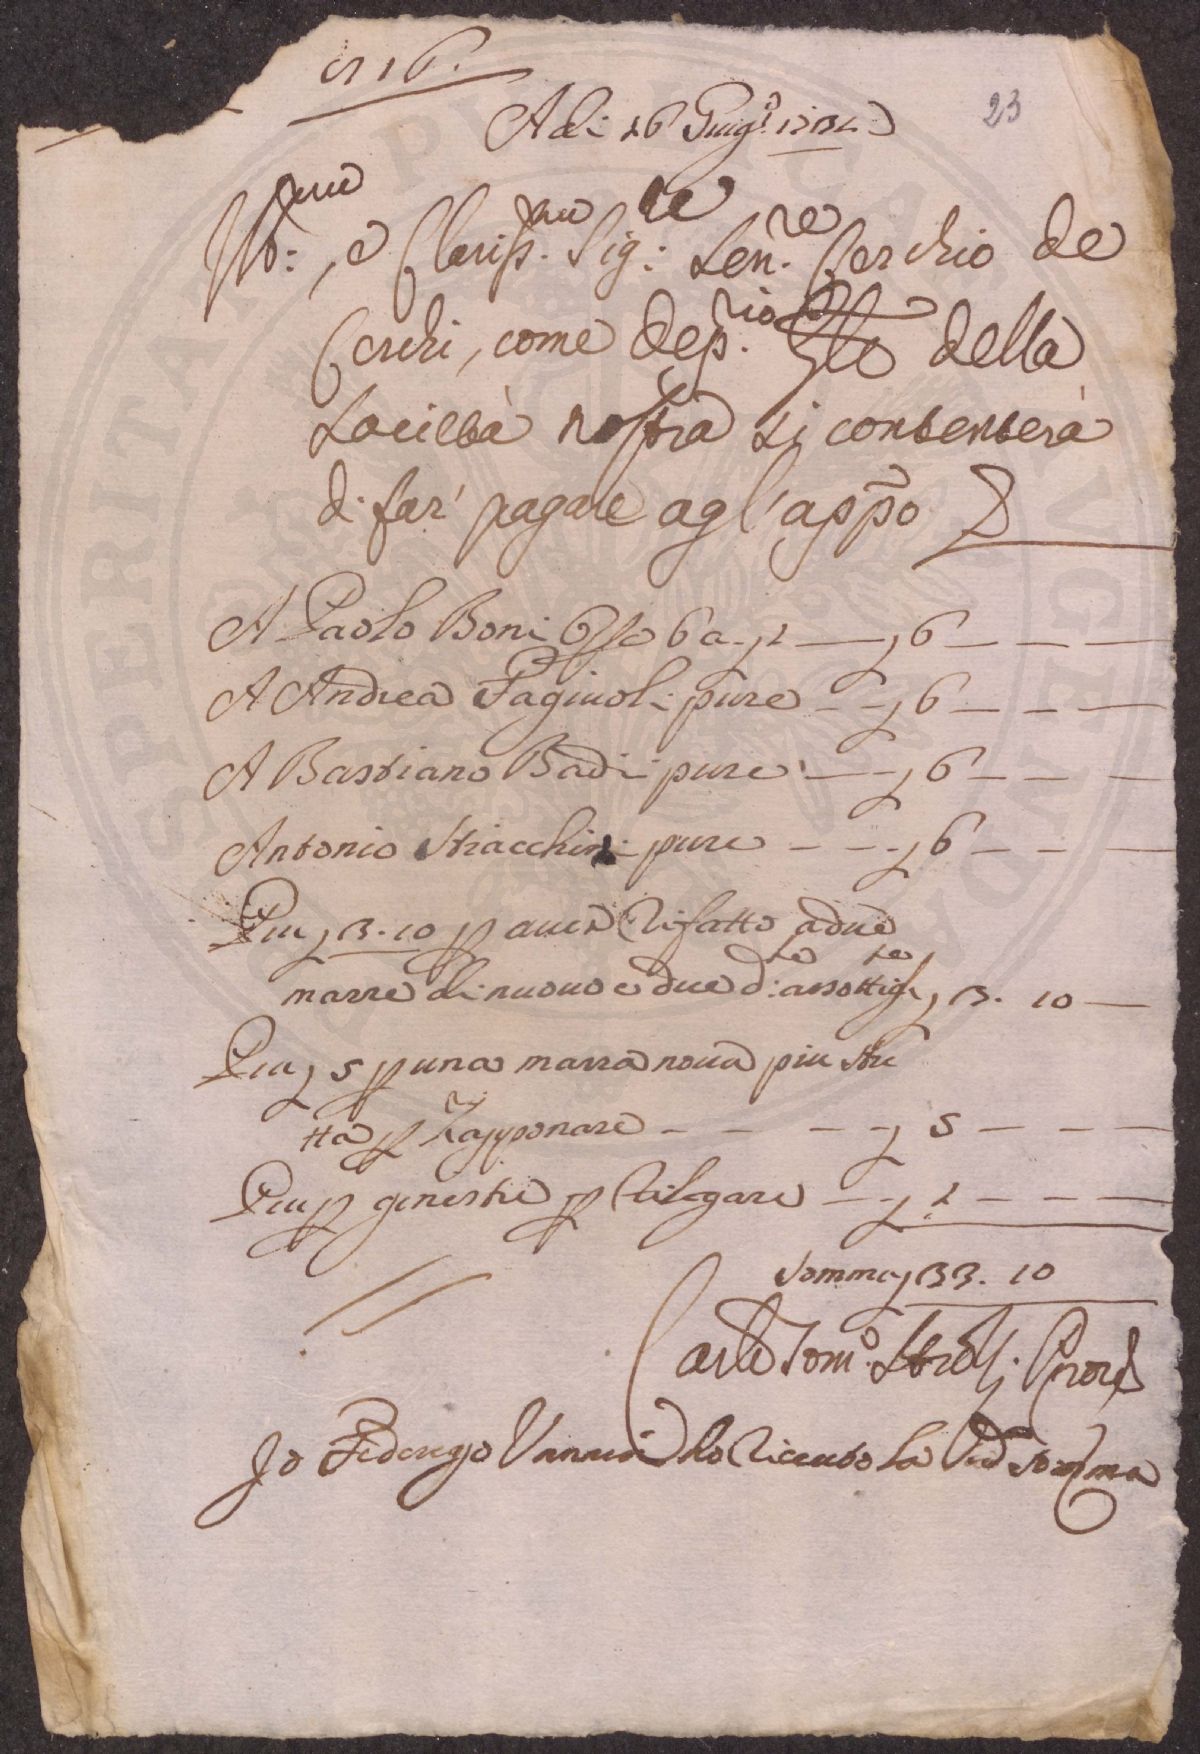 n 16.
23
A di 16 Giug.o 1734
Ill:mo, e Clariss.mo Sig:re Sen.re Cerchio de
Cerchi, come dep.rio della
Società nostra si contenterà
di far' pagare agl'app.o
A Paolo Boni 6 a 1 — 6 — — —
A Andrea Fagiuoli pure — — 6 — — —
A Bastiano Badii pure — — 6 — — —
Antonio Stiacchini pure — — — 6 — — —
Piu 3. 10 p aver rifatto a due
marre di nuovo e due di assottigl 3. 10 —
Piu 5 p una marra nova piu stre
tta p Zapponare — — — — 5 — — —
Piu p ginestre p rilegare — — 1 — — —
Somma 33. 10
Carlo Tom.o Strozzi. Prov.re
Io Federigo Vannini ho ricevuto la somma